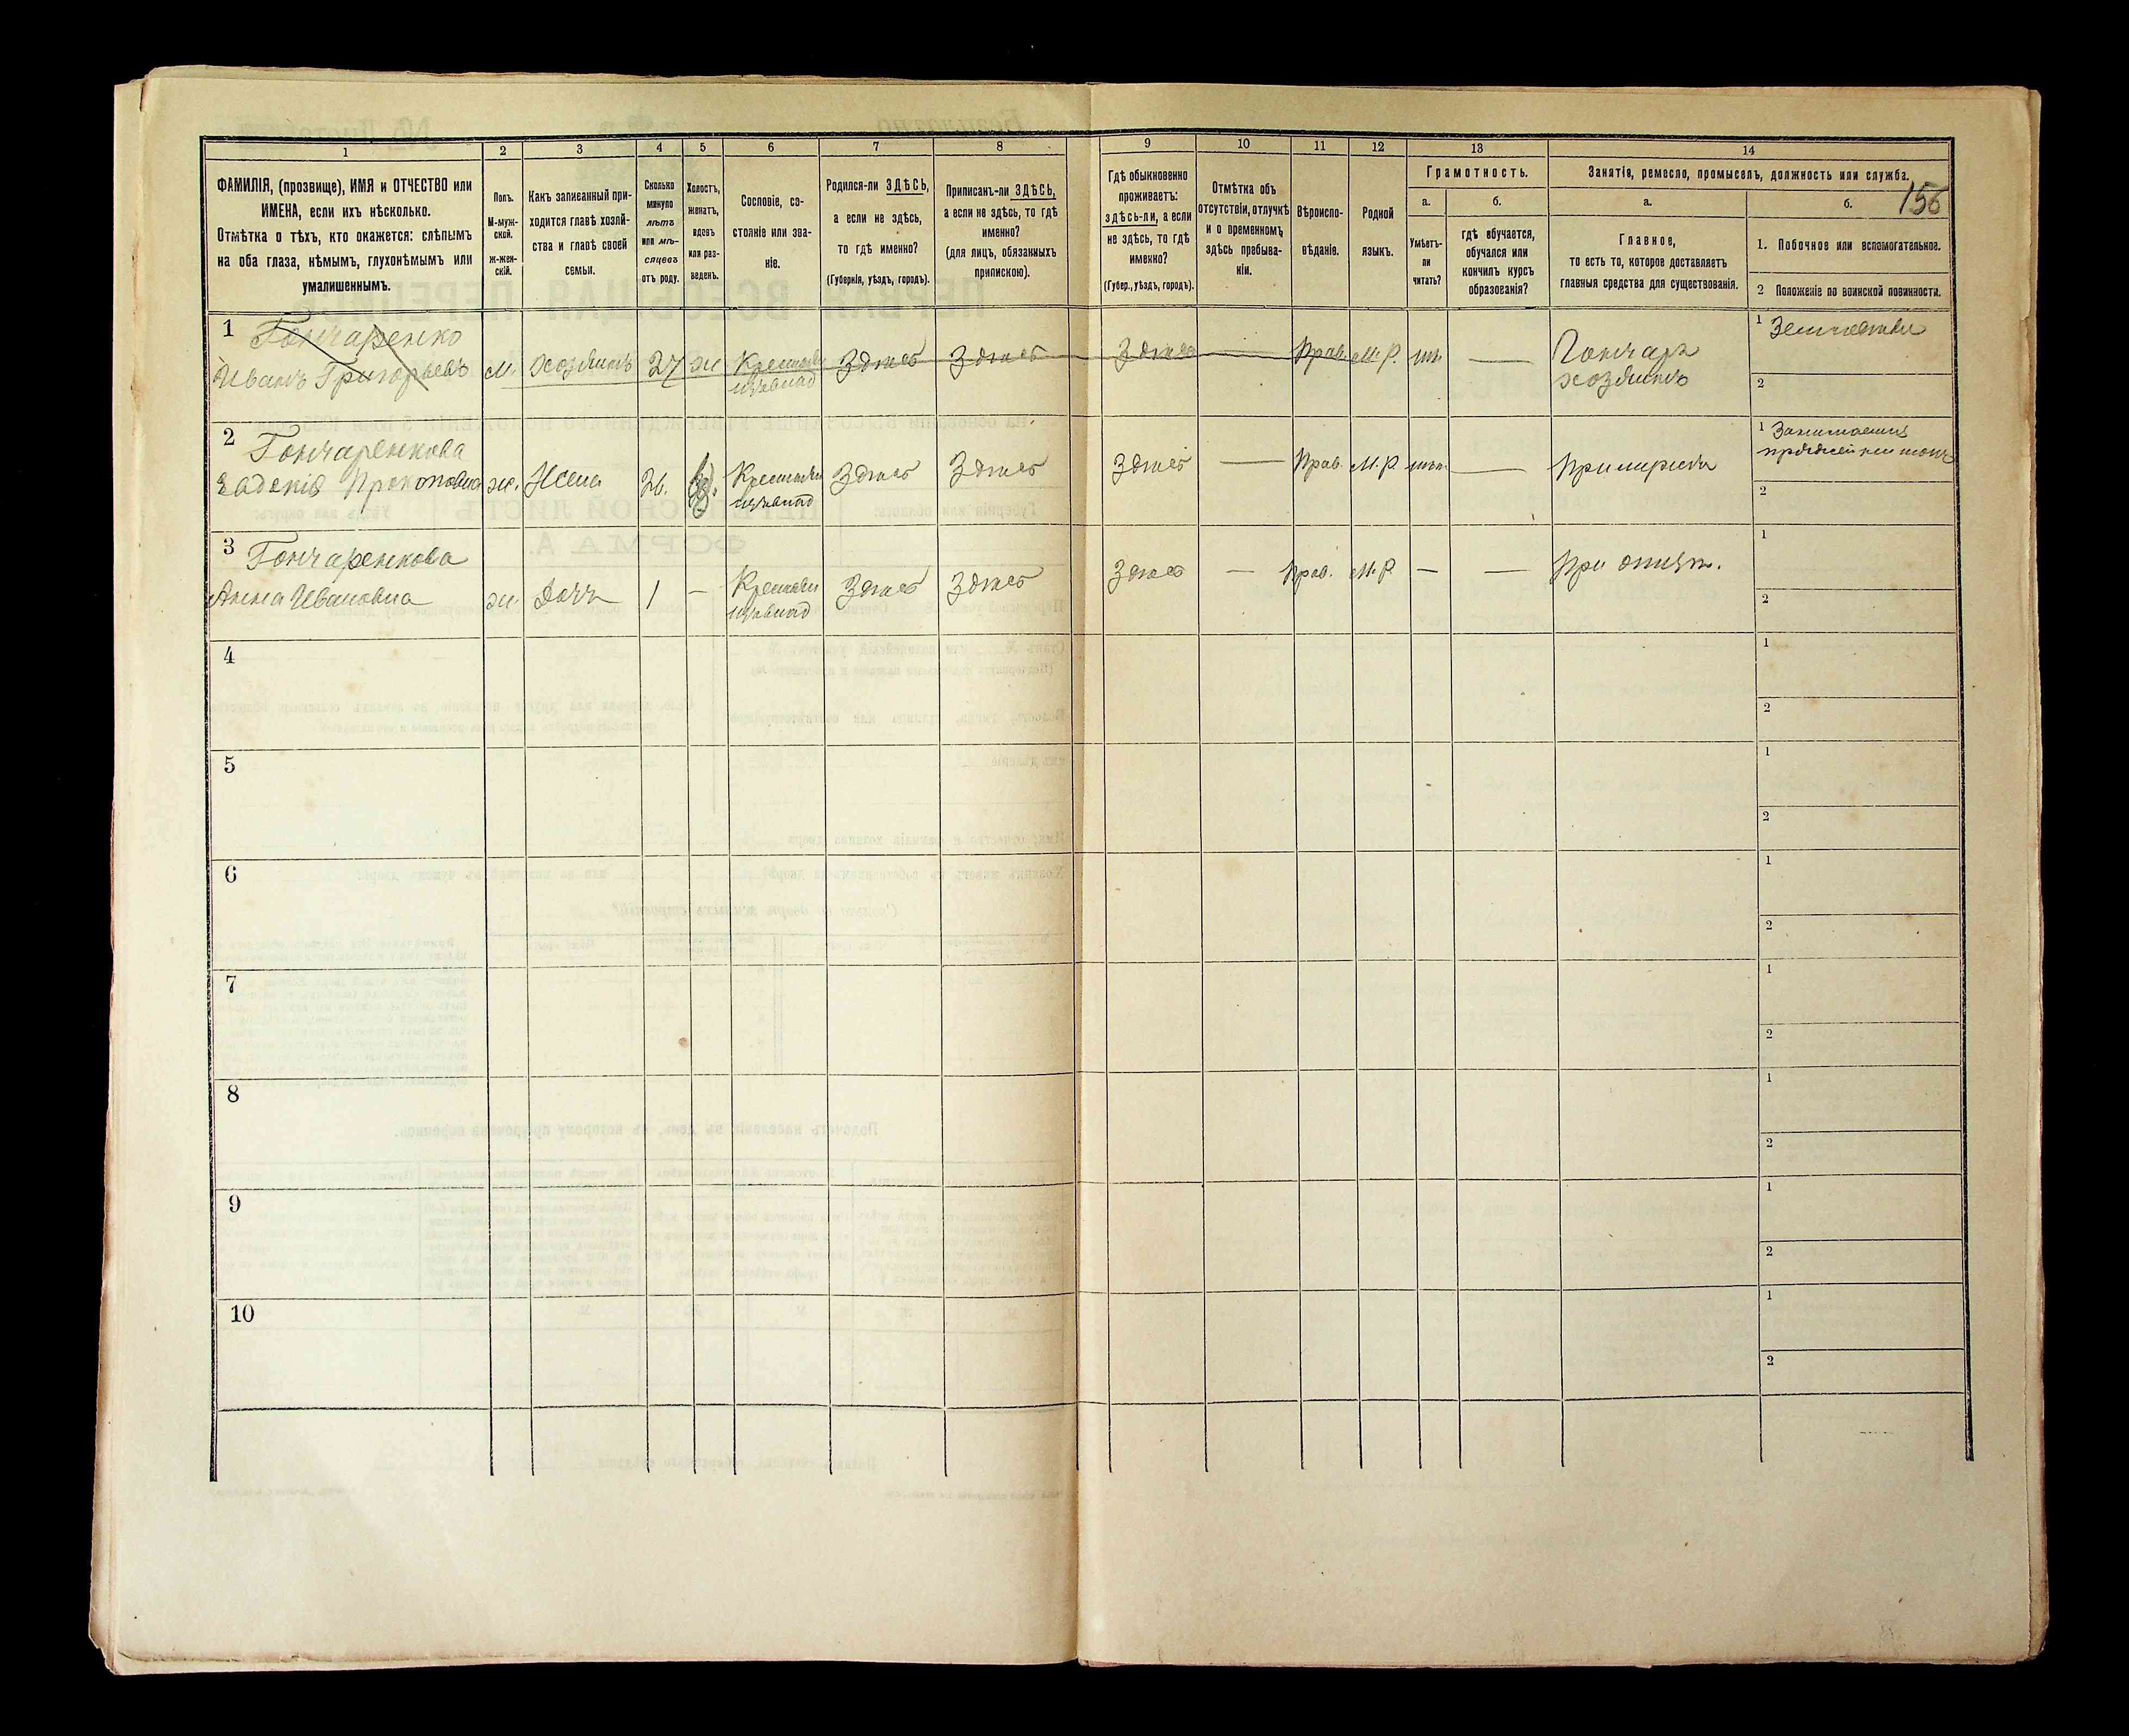 1
2
3
4
5
6
7
8
ФАМИЛІЯ, (прозвище), ИМЯ и ОТЧЕСТВО или
ИМЕНА, если ихъ нѣсколько.
Отмѣтка о тѣхъ, кто окажется: слѣпымъ
на оба глаза, нѣмымъ, глухонѣмымъ или
умалишеннымъ.
Полъ.
М-муж-
ской.
Ж-жен-
скій.
Какъ записанный при-
ходится главѣ хозяй-
ства и главѣ своей
семьи.
Сколько
минуло
лѣтъ
или мѣ-
сяцевъ
отъ роду.
Холостъ,
женатъ,
вдовъ
или раз-
веденъ.
Сословіе, со-
стояніе или зва-
ніе.
Родился-ли ЗДѢСЬ,
а если не здѣсь,
то гдѣ именно?
(Губернія, уѣздъ, городъ).
Приписанъ-ли ЗДѢСЬ,
а если не здѣсь, то гдѣ
именно?
(для лицъ, обязанныхъ
припискою).
9
10
11
12
13
14
Гдѣ обыкновенно
проживаетъ:
здѣсь-ли, а если
не здѣсь, то гдѣ
именно?
(Губер., уѣздъ, городъ).
Отмѣтка объ
отсутствіи, отлучкѣ
и о временномъ
здѣсь пребыва-
ніи.
Вѣроиспо-
вѣданіе.
Родной
языкъ.
Грамотность.
а.
Умѣетъ-
ли
читать?
б.
гдѣ обучается,
обучался или
кончилъ курсъ
образованія?
Занятія, ремесло, промыселъ, должность или служба.
156
а.
Главное,
то есть то, которое доставляетъ
главныя средства для существованія.
б.
1. Побочное или вспомогательное.
2 Положеніе по воинской повинности.
1 Гончаренко
Иванъ Григорьевъ
м. хозяинъ 27 ж Здѣсь Здѣсь
Здѣсь — Прав. М.Р. —
Гончаръ
хозяинъ
1
2
2 Гончаренкова
Евдокія Прокоповна
ж. Жена 26. Здѣсь Здѣсь
Здѣсь — Прав. М.Р. —
1 Занимается
2
3 Гончаренкова
Анна Ивановна
ж. Дочь 1 — Здѣсь Здѣсь
Здѣсь — Прав. М.Р. — — При отцѣ.
1
2
4
1
2
5
1
2
6
1
2
7
1
2
8
1
2
9
1
2
10
1
2